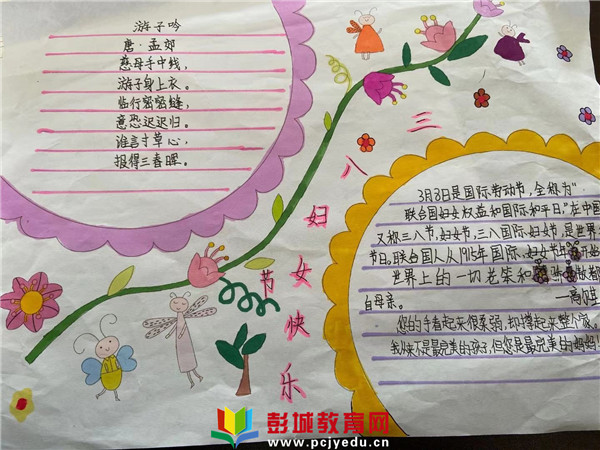 游子吟
唐·孟郊
慈母手中线，
游子身上衣。
临行密密缝，
意恐迟迟归。
谁言寸草心，
报得三春晖。
三八妇女节快乐
3月8日是国际劳动节，全称为"
联合国妇女权益和国际和平日。"在中国
又称三八节，妇女节，三八国际妇女节，是世界
节日。联合国人从1975年国际妇女年开始
世界上的一切光荣和
自母亲。
您的手看起来很柔弱，却撑起来整个家。
我从来不是最完美的孩子，但您是最完美的妈妈！
彭城教育网
www.pcjyedu.cn